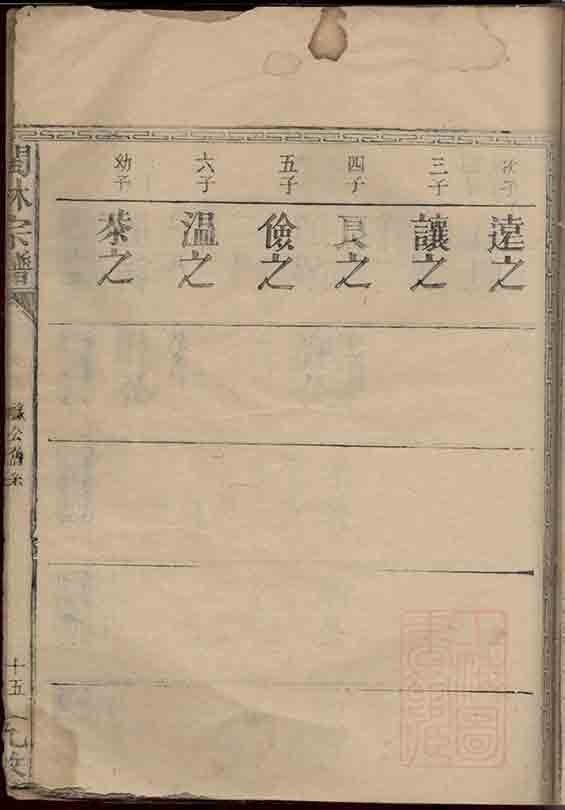 次子
遠之
三子
讓之
四子
良之
五子
儉之
六子
溫之
幼子
恭之
林宗譜
十五